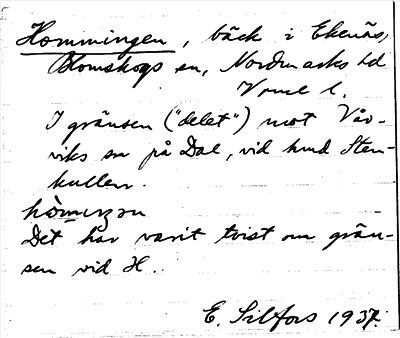 Hommingen, bäck i Ekenäs,
Blomskogs sn, Nordmarks hd
Vrml l.
I gränsen ("delet") mot Vår-
viks sn på Dal, vid
kullen.
Det har varit tvist om grän-
sen vid H.
E. Silfors 1937.